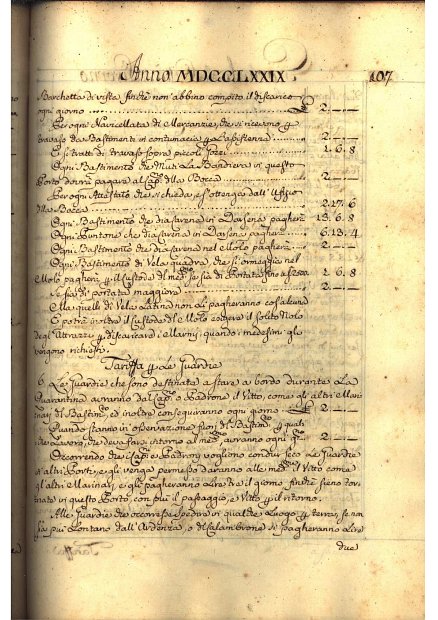 Anno MDCCLXXIX. 107
Barchetta di vista finchè non' abbino compito il discarico
ogni giorno 2.—.—
Per ogni Navicellata di Mercanzie, che si ricevono p
travaso da Bastimenti in contumacia p l'assistenza 2.—.—
E si tratti di travaso sopra piccoli Pozzi 1. 6. 8
Ogni Bastimento che Muti la Bandiera in questo
Porto dovrà pagare al Cap. della Bocca 2.—.—
Per ogni Attestato che si chieda, e s'ottenga dall' Ufizio
della Bocca 2. 17. 6
Ogni Bastimento che dia carena in Darsena pagherà 13. 6. 8
Ogni Puntone che dia carena in Darsena pagherà 6. 13. 4
Ogni Bastimento che dia carena nel Molo pagherà 2.—.—
Ogni Bastimento di Vela quadra, che si ormeggia nel
Molo pagherà p il Custode del med. se sia di Portata fino a 1. 6. 8
E sia di portata maggiore 2.—.—
E la quelli di Vela Latina non Li pagheranno cos'alcuna
E potrà inoltre il Custode del Molo esigere il solito Nolo
degl' Attrazzi p discaricare i Marmi, quando i medesimi gli
vengono richiesti.
Tariffa p Le Guardie
6. Le Guardie che sono destinate a stare a bordo durante La
Quarantina avranno dal Cap. o Padrone il Vitto, come gli altri Mari-
nari del Bastim. ed inoltre conseguiranno ogni giorno 2.—.—
Quando stanno in osservazione fuori del Bastim. p quali
che Lavoro, che deva farsi intorno al med. avranno ogni 2.—.—
Occorrendo che i Cap. o Padroni vogliono condur seco Le Guardie
in altri Porti, e gli venga permesso daranno alle med. il Vitto come
agl' altri Marinari, e gli pagheranno Lire tre il giorno finchè sieno tor-
nate in questo Porto, con più il passaggio, e Vitto p il ritorno.
Alle Guardie che occorresse spedire in qualche Luogo p terra, se non
sia più Lontano dall' Ardenza, o dal Calambrone si pagheranno Lire
due